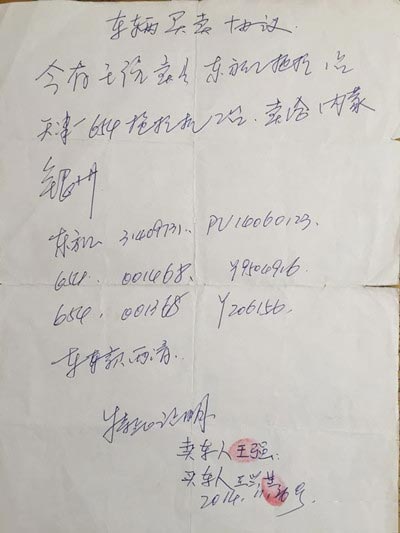 车辆买卖协议
今有王强卖给东方红拖拉机1台
天津-654拖拉机2台. 卖给内蒙
东方红 31409731. PV14060123.
654. 001468. Y9504916.
654. 001368 Y206156.
车与款两清.
特此证明
卖车人 王强.
买车人 王
2014.11.30号